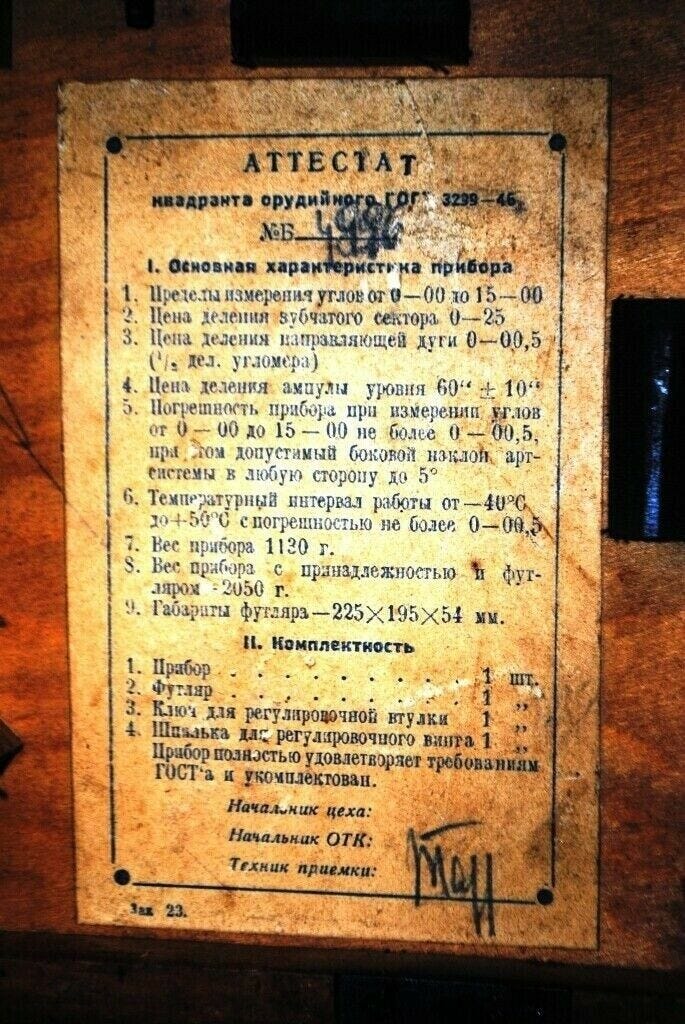 АТТЕСТАТ
квадранта орудийного ГОСТ 3299—46
№Б
I. Основная характеристика прибора
1. Пределы измерения углов от 0—00 до 15—00
2. Цена деления зубчатого сектора 0—25
3. Цена деления направляющей дуги 0—00,5
(¹/₂ дел. угломера)
4. Цена деления ампулы уровня 60“ ± 10“
5. Погрешность прибора при измерении углов
от 0—00 до 15—00 не более 0—00,5,
при этом допустимый боковой наклон арт-
системы в любую сторону до 5°
6. Температурный интервал работы от—40°С
до+50°С с погрешностью не более 0—00,5
7. Вес прибора 1130 г.
8. Вес прибора с принадлежностью и фут-
ляром -2050 г.
9. Габариты футляра—225×195×54 мм.
II. Комплектность
1. Прибор . . . . . . . . . 1 шт.
2. Футляр . . . . . . . . . 1 „
3. Ключ для регулировочной втулки 1 „
4. Шпилька для регулировочного винта 1 „
Прибор полностью удовлетворяет требованиям
ГОСТ‘а и укомплектован.
Начальник цеха:
Начальник ОТК:
Техник приемки:
Зак 23.